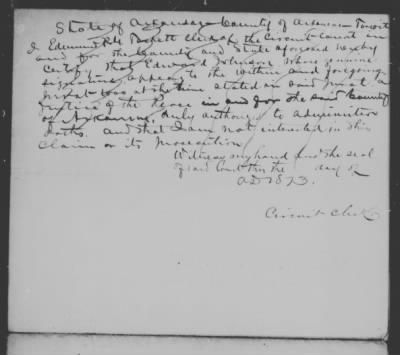 State of Arkansas County of Arkansas Towit
I Edmund Clerk of the Circuit Court in
and for the County and State aforesaid hereby
certify that Edward Johnson whose genuine
signature appears to the within and foregoing
was at the time stated in said jurat a
Justice of the Peace in and for the said County
of Arkansas, duly authorized to administer
Oaths. and that I am not interested in this
Claim or its prosecution
Witness my hand and the seal
of said Court this the day of
AD 1873.
Circuit Clerk